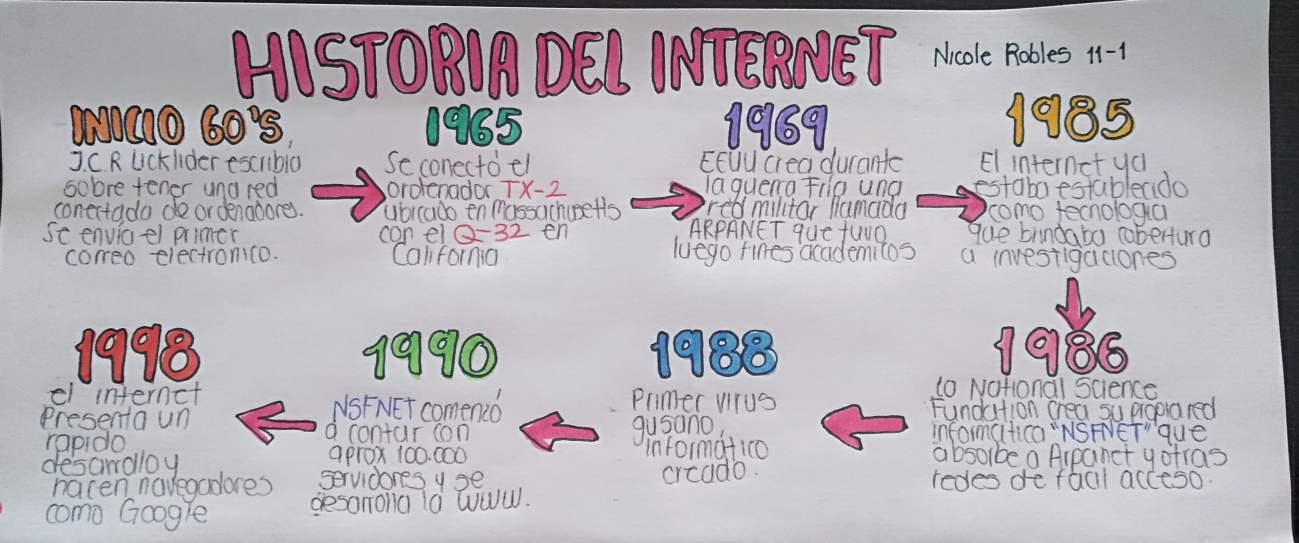 HISTORIA DEL INTERNET
Nicole Robles 11-1
INICIO 60'S
J.C.R Licklider escribió
sobre tener una red
conectada de ordenadores.
Se envía el primer
correo electronico.
1965
Se conectó el
ordenador TX-2
ubicado en Massachusetts
con el Q-32 en
California
1969
EEUU crea durante
la guerra Fría una
red militar llamada
ARPANET que tuvo
luego fines academicos
1985
El internet ya
estaba establecido
como tecnologia
que brindaba cobertura
a investigaciones
1986
La National Science
Fundation crea su propia red
informática "NSFNET" que
absorbe a Arpanet y otras
redes de facil acceso.
1988
Primer virus
gusano
informático
creado.
1990
NSFNET comenzó
a contar con
aprox 100.000
servidores y se
desarrolla la WWW.
1998
el internet
Presenta un
rapido
desarrollo y
nacen navegadores
como Google